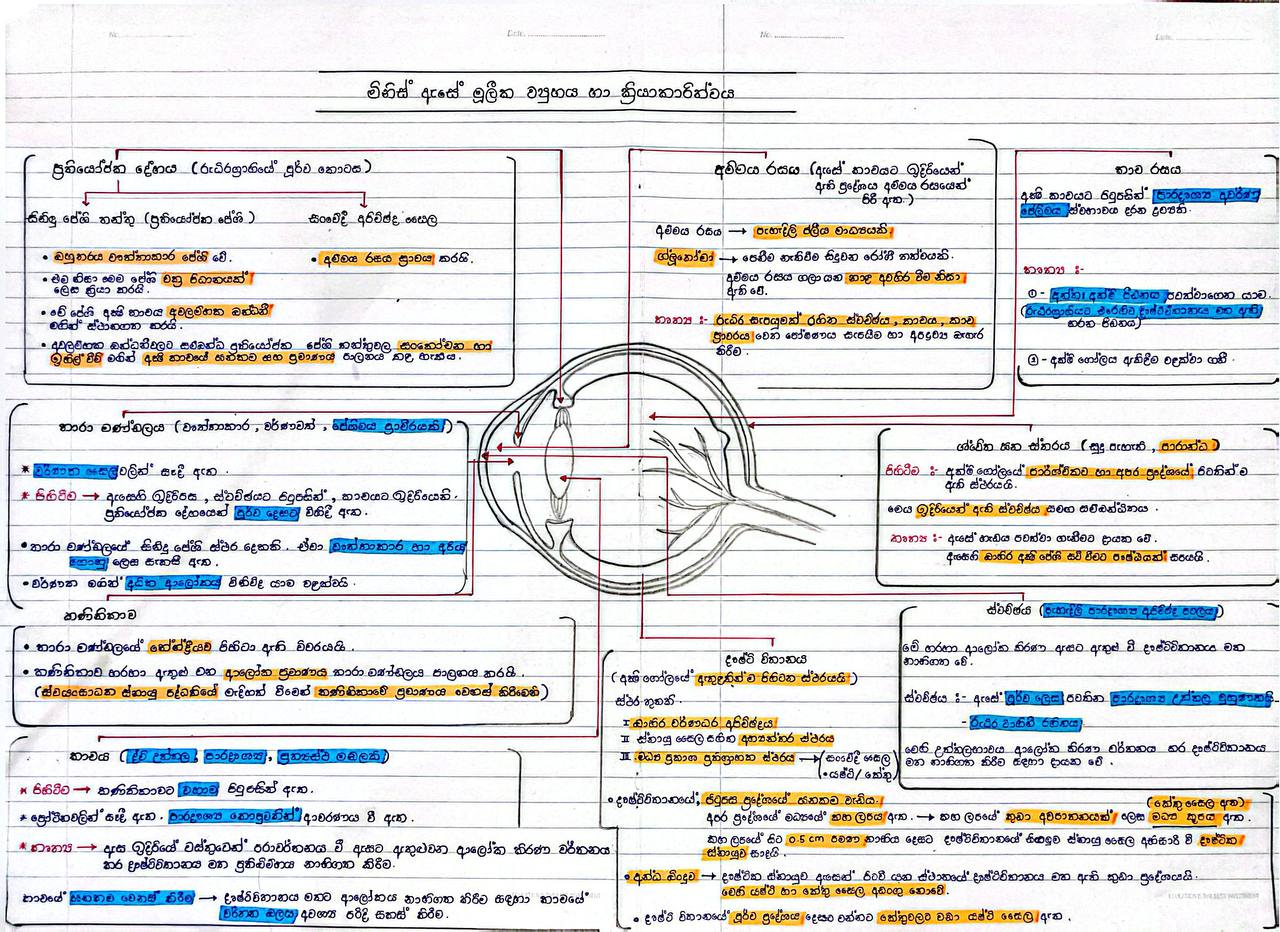 No. Date. No. Date.
මිනිස් ඇසේ මූලික ව්‍යුහය හා ක්‍රියාකාරිත්වය
ප්‍රතියෝජක දේහය (රුධිරග්‍රාහියේ පූර්ව කොටස)
සිනිඳු පේශි තන්තු (ප්‍රතියෝජක පේශි)
• බහුතරය වෘත්තාකාර පේශි වේ.
• එම නිසා මෙම පේශි වක්‍ර පිධානයක්
ලෙස ක්‍රියා කරයි.
• මේ පේශි අක්ෂි කාචය අවලම්භක බන්ධනී
මගින් ස්ථානගත කරයි.
• අවලම්භක බන්ධනීවලට සම්බන්ධ ප්‍රතියෝජක පේශි තන්තුවල සංකෝචන හා
ඉහිල් වීම් මගින් අක්ෂි කාචයේ හැඩය සහ ප්‍රමාණය පාලනය කළ හැකිය.
සංවේදී අපිච්ඡද සෛල
• අම්මය රසය ශ්‍රාවය කරයි.
අම්මය රසය (ඇසේ කාචයට ඉදිරියෙන්
ඇති ප්‍රදේශය අම්මය රසයෙන්
පිරී ඇත.)
අම්මය රසය → පැහැදිලි ජලීය මාධ්‍යයකි.
ග්ලූකෝමා → පෙනීම නැතිවීම සිදුවන රෝගී තත්වයකි.
අම්මය රසය ගලා යන නාල අවහිර වීම නිසා
ඇති වේ.
කෘත්‍ය :- රුධිර සැපයුමක් රහිත ස්වච්ඡය, කාචය, කාච
ප්‍රාවරය වෙත පෝෂණය සැපයීම හා අපද්‍රව්‍ය බැහැර
කිරීම.
කාච රසය
අක්ෂි කාචයට පිටුපසින් පාරදෘශ්‍ය අවර්ණ
ජෙලිමය ස්වභාවය දරන ද්‍රව්‍යකි.
කෘත්‍ය :-
① - අන්තඃ අක්ෂි පීඩනය පවත්වාගෙන යාම.
② - අක්ෂි ගෝලය ඇතිළීම වළක්වා ගනී
තාරා මණ්ඩලය (වෘත්තාකාර, වර්ණවත්, පේශිමය ප්‍රාචීරයකි)
* වර්ණක සෛලවලින් සෑදී ඇත.
* පිහිටීම → ඇසෙහි ඉදිරිපස, ස්වච්ඡයට පිටුපසින්, කාචයට ඉදිරියෙනි.
ප්‍රතියෝජක දේහයෙන් පූර්ව දෙසට විහිදී ඇත.
• තාරා මණ්ඩලයේ සිනිඳු පේශි ස්ථර දෙකකි. ඒවා වෘත්තාකාර හා අරීය
ලෙස සැකසී ඇත.
• වර්ණක මගින් අධික ආලෝකය විනිවිද යාම වළක්වයි.
ශ්වේත ඝන ස්තරය (සුදු පැහැති, පාරාන්ධ)
පිහිටීම :- අක්ෂි ගෝලයේ පාර්ශ්වික හා අපර ප්‍රදේශයේ පිටතින් ම
ඇති ස්ථරයයි.
මෙය ඉදිරියෙන් ඇති ස්වච්ඡය සමඟ සම්බන්ධිතය.
කෘත්‍ය :- ඇසේ හැඩය පවත්වා ගැනීමට දායක වේ.
ඇසෙහි බාහිර අක්ෂි පේශි සවි වීමට පෘෂ්ඨයක් සපයයි.
කණිනිකාව
• තාරා මණ්ඩලයේ කේන්ද්‍රීයව පිහිටා ඇති විවරයයි.
• කණිනිකාව හරහා ඇතුළු වන ආලෝක ප්‍රමාණය තාරා මණ්ඩලය පාලනය කරයි.
(ස්වයංසාධක ස්නායු පද්ධතියේ මැදිහත් වීමෙන් කණිනිකාවේ ප්‍රමාණය වෙනස් කිරීමෙනි)
ස්වච්ඡය (පැහැදිලි පාරදෘශ්‍ය අපිච්ඡද පටලය)
මේ හරහා ආලෝක කිරණ ඇසට ඇතුළු වී දෘෂ්ටිවිතානය මත
නාභිගත වේ.
ස්වච්ඡය :- ඇසේ පූර්ව ලෙස පවතින පාරදෘශ්‍ය උත්තල මුහුණතකි.
- රුධිර වාහිනී රහිතය.
මෙහි උත්තලභාවය ආලෝක කිරණ වර්තනය කර දෘෂ්ටිවිතානය
මත නාභිගත කිරීම සඳහා දායක වේ.
දෘෂ්ටි විතානය
(අක්ෂි ගෝලයේ ඇතුළතින්ම පිහිටන ස්ථරයයි)
ස්ථර තුනකි.
I බාහිර වර්ණධර අපිච්ඡදය
II ස්නායු සෛල සහිත අභ්‍යන්තර ස්ථරය
III මධ්‍ය ප්‍රකාශ ප්‍රතිග්‍රාහක ස්ථරය → (සංවේදී සෛල
• යෂ්ටි/කේතු)
කාචය (ද්වි උත්තල, පාරදෘශ්‍ය, ප්‍රත්‍යස්ථ මඬලකි)
* පිහිටීම → කණිනිකාවට වහාම පිටුපසින් ඇත.
* ප්‍රෝටීනවලින් සෑදී ඇත. පාරදෘශ්‍ය කොපුවකින් ආවරණය වී ඇත.
* කෘත්‍ය → ඇස ඉදිරියේ වස්තුවෙන් පරාවර්තනය වී ඇසට ඇතුළුවන ආලෝක කිරණ වර්තනය
කර දෘෂ්ටිවිතානය මත ප්‍රතිබිම්බය නාභිගත කිරීම.
කාචයේ ඝනකම වෙනස් කිරීම → දෘෂ්ටිවිතානය මතට ආලෝකය නාභිගත කිරීම සඳහා කාචයේ
වර්තන බලය අවශ්‍ය පරිදි සකස් කිරීම.
• දෘෂ්ටිවිතානයේ, පිටුපස ප්‍රදේශයේ ඝනකම වැඩිය.
(කේතු සෛල ඇත)
අපර ප්‍රදේශයේ මධ්‍යයේ කහ ලපය ඇත. → කහ ලපයේ කුඩා අවපාතනයක් ලෙස මධ්‍ය කූපය ඇත.
කහ ලපයේ සිට 0.5 cm පමණ නාසය දෙසට දෘෂ්ටිවිතානයේ සියළුම ස්නායු සෛල අභිසාරී වී දෘෂ්ටික
ස්නායුව සාදයි.
• අන්ධ බිංදුව → දෘෂ්ටික ස්නායුව ඇසෙන් පිටවී යන ස්ථානයේ දෘෂ්ටිවිතානය මත ඇති කුඩා ප්‍රදේශයයි.
මෙහි යෂ්ටි හා කේතු සෛල අඩංගු නොවේ.
• දෘෂ්ටි විතානයේ පූර්ව ප්‍රදේශය දෙසට වන්නට කේතුවලට වඩා යෂ්ටි සෛල ඇත.